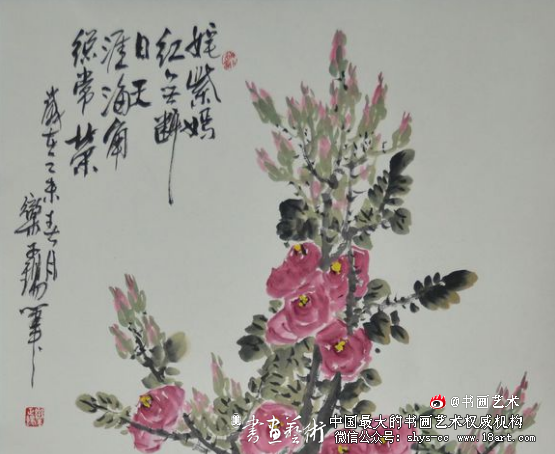 姹紫嫣
红无断
日天
涯海角
總常荣
岁在乙未春月
@书画艺术
書画藝術
中国最大的书画艺术权威机构
微信公众号: shys-cc www.18art.com